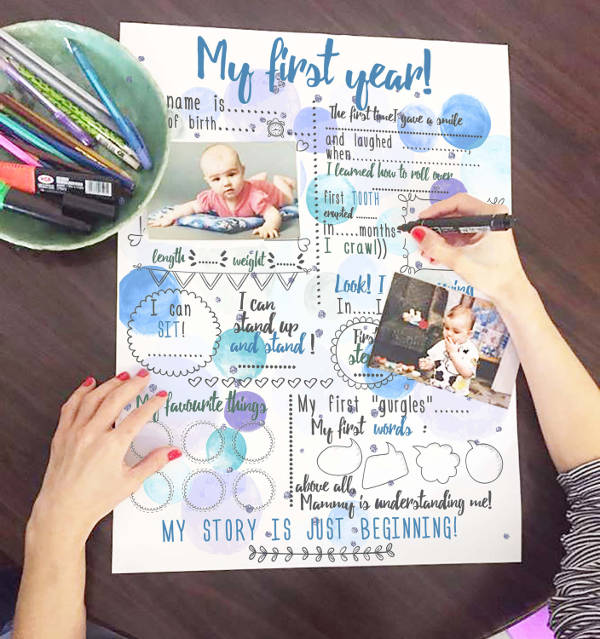 My first year!
name is........
of birth......
The first time I gave a smile
and laughed
when
I learned how to roll over
first TOOTH
erupted
In.....months
I crawl))
length ...... weight ......
Look! I
In....
I can
SIT!
I can
stand up
and stand!
First
My favourite things
My first "gurgles".......
My first words :
above all,
Mammy is understanding me!
MY STORY IS JUST BEGINNING!